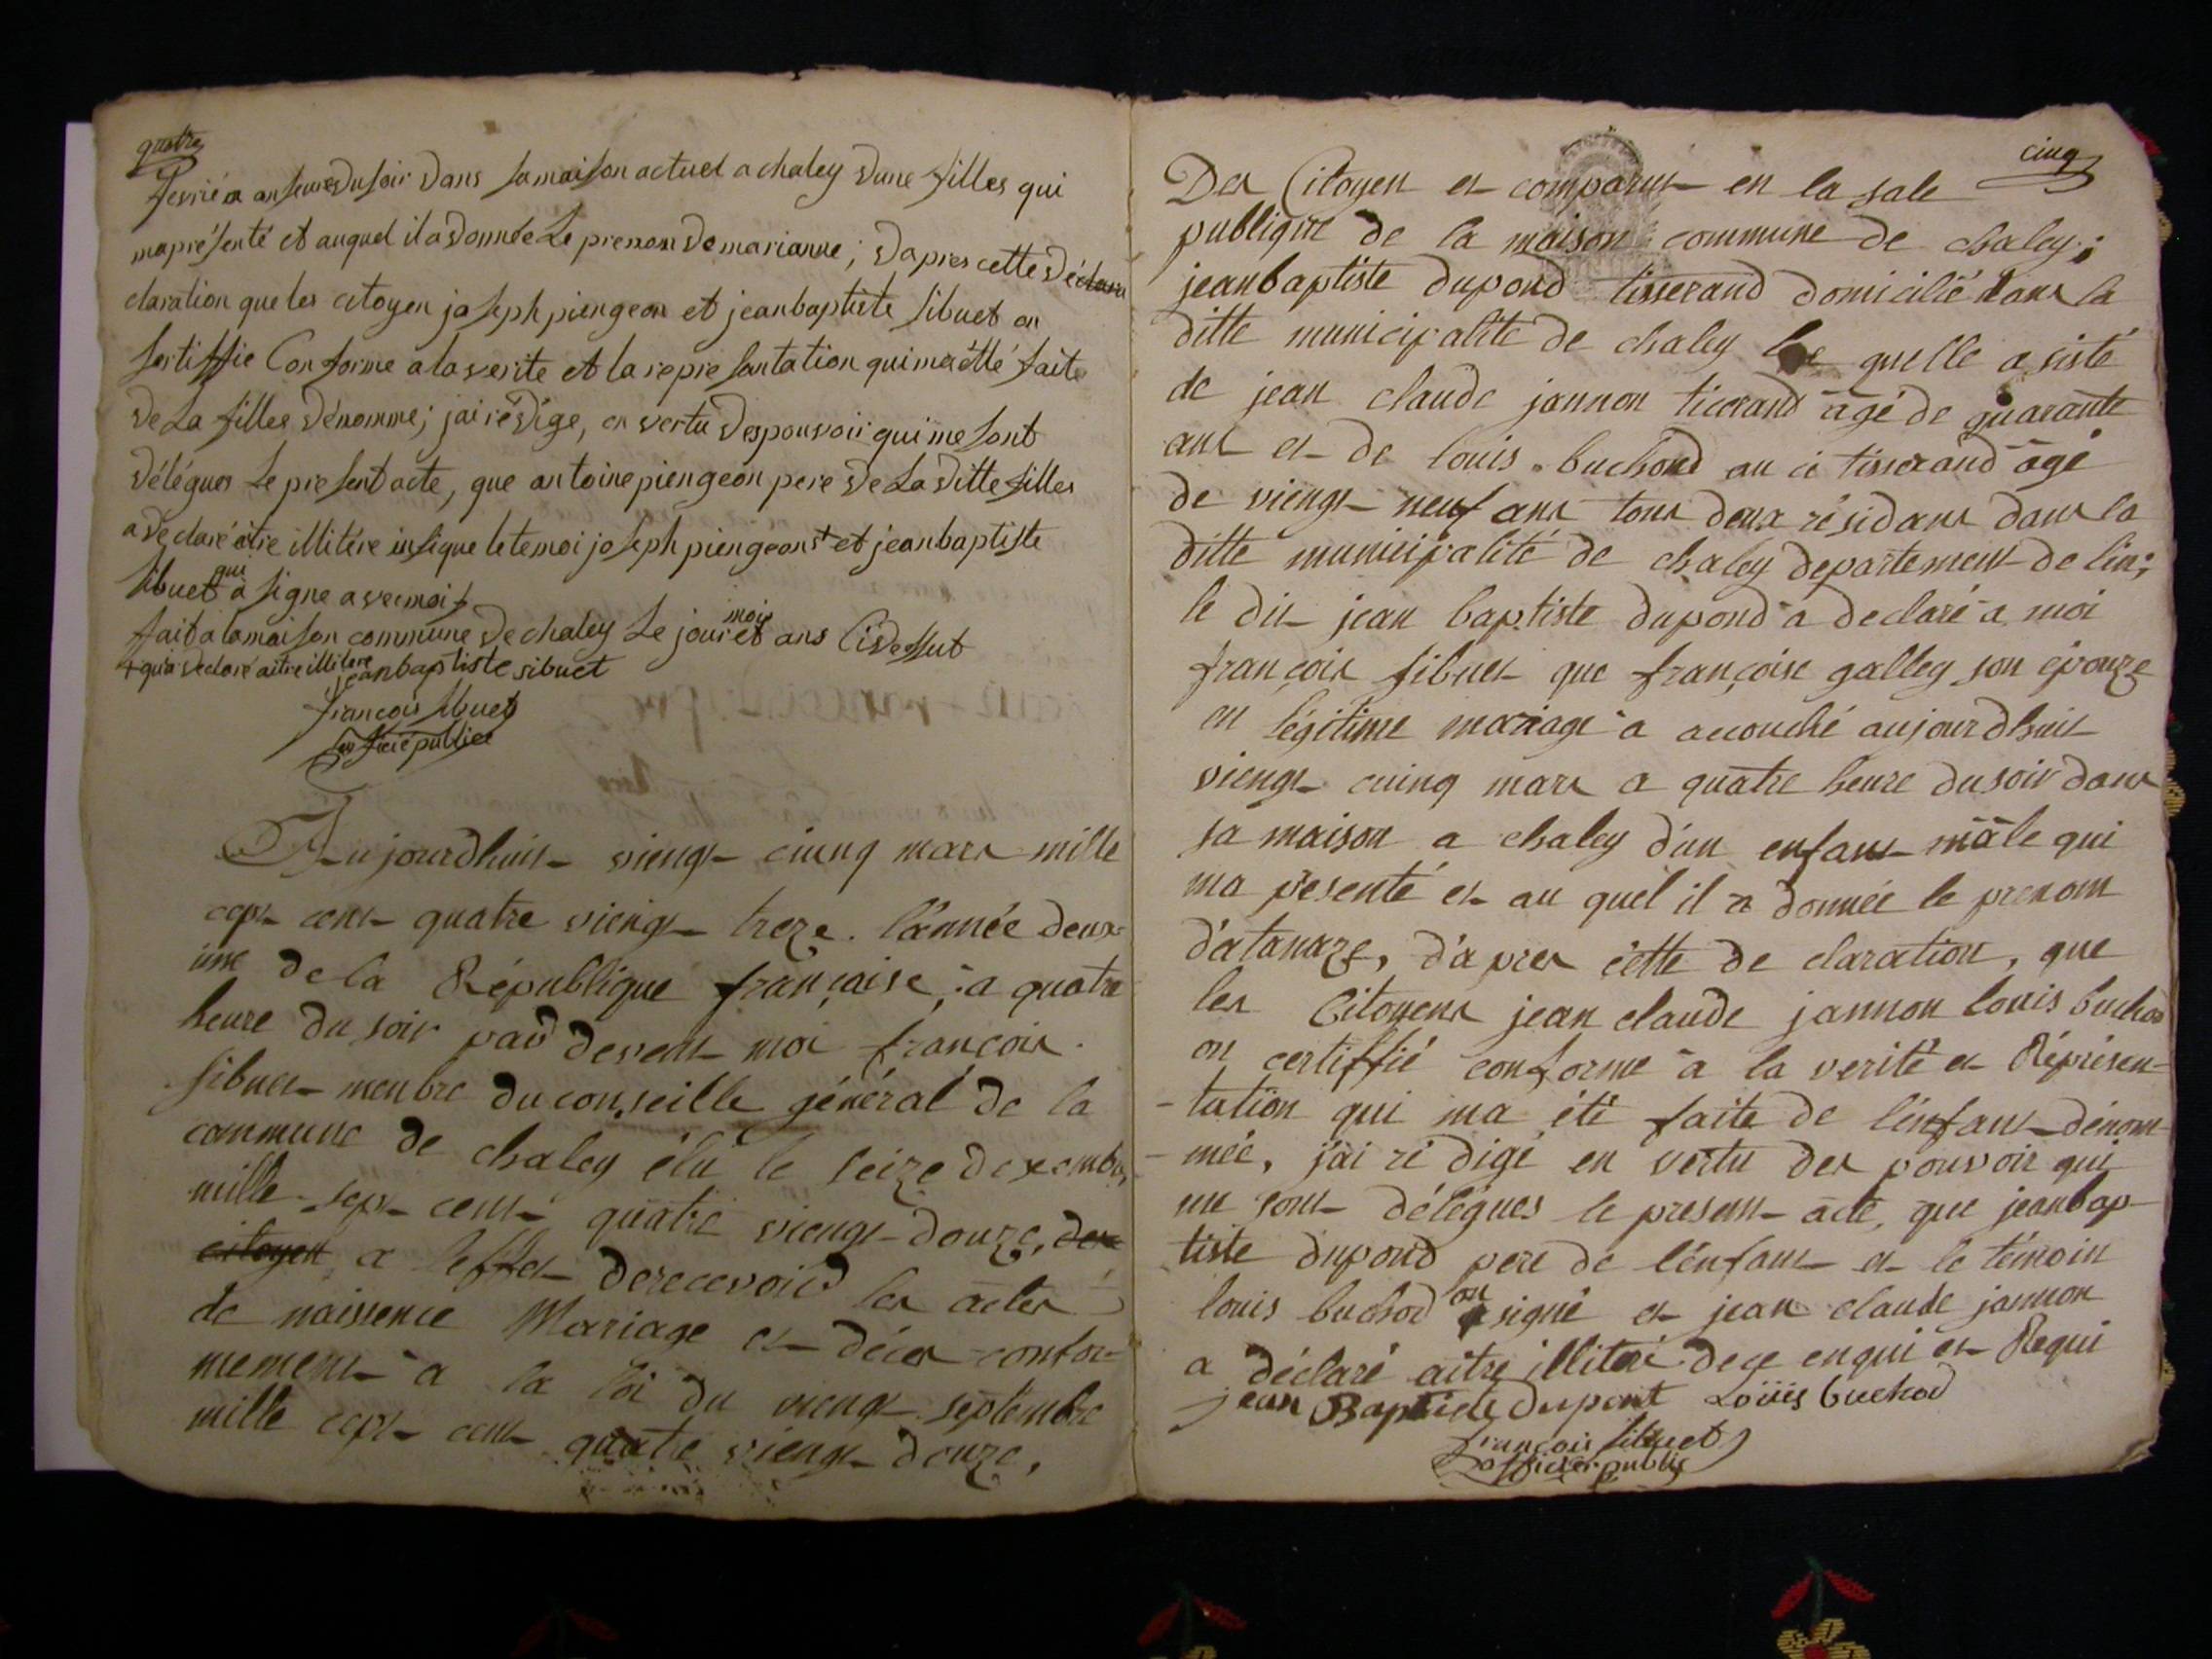 quatre
fevrié a onseures du soir dans sa maison actuel a chaley dune filles qui
ma présenté et auquel il a donnée le prenom de marianne ; dapres cette dé
claration que les citoyen joseph piengeon et jean baptiste sibuet on
sertiffie Conforme a la verite et la represantation qui ma étté faite
de la filles dénomme ; jai rédige, en vertu des pouvoir qui me sont
délégues le present acte, que antoine piengeon pere de la ditte filles
a declaré aitre illitére insique le temoi joseph piengeon + et jean baptiste
sibuet qui a signe avec moi
fait a la maison commune de chaley le jour mois et ans Cidessut
+ qui a declaré aitre illitere jean baptiste sibuet
francois sibuet
officié publice
Aujourdhuit viengt cuinq mars mille
cept cent quatre viengt treze. l'année deux=
ime de la République française, a quatre
heure du soir pard devent moi françois
sibuet menbre du conseille général de la
commune de chaley élu le seize dexembre
mille sept cent quatre viengt douze, des
citoyen a leffet derecevoird les actes
de naissence Mariage et déces confor=
mement a la loi du viengt septembre
mille cept cent quatre viengt douze,
cinq
Des Citoyen et comparut en la sale
publique de la maison commune de chaley ;
jean baptiste dupond tisserand domicilié dans la
ditte municipalite de chaley le quelle a sisté
de jean claude jannon ticerand agé de quarante
ans et de louis buchond au ci tisserand agé
de viengt neuf ans tous deux résidans dans la
ditte municipalité de chaley departement de lin ;
le dit jean baptiste dupond a declaré a moi
françois sibuet que françoise galley son épouze
en légitime mariage a acouché aujourdhuit
viengt cuinq mars a quatre heure du soir dans
sa maison a chaley d'un enfant mâle qui
ma pesenté et au quel il a donnée le prenom
d'atanaze, d'apres cette de claration, que
les Citoyens jean claude jannon louis buchod
on certiffié conforme a la verité et Réprésen=
-tation qui ma été faite de l'enfant dénom
-mée, j'ai rédigé en vertu des pouvoir qui
me sont délégues le present acte, que jean bap-
tiste dupond pere de l'enfant et le témoin
louis buchod on signé et jean claude jannon
a déclaré aitre illiteré de ce enqui et Requi
jean Baptiste dupont Loüis buchod
françois sibuet
officier public